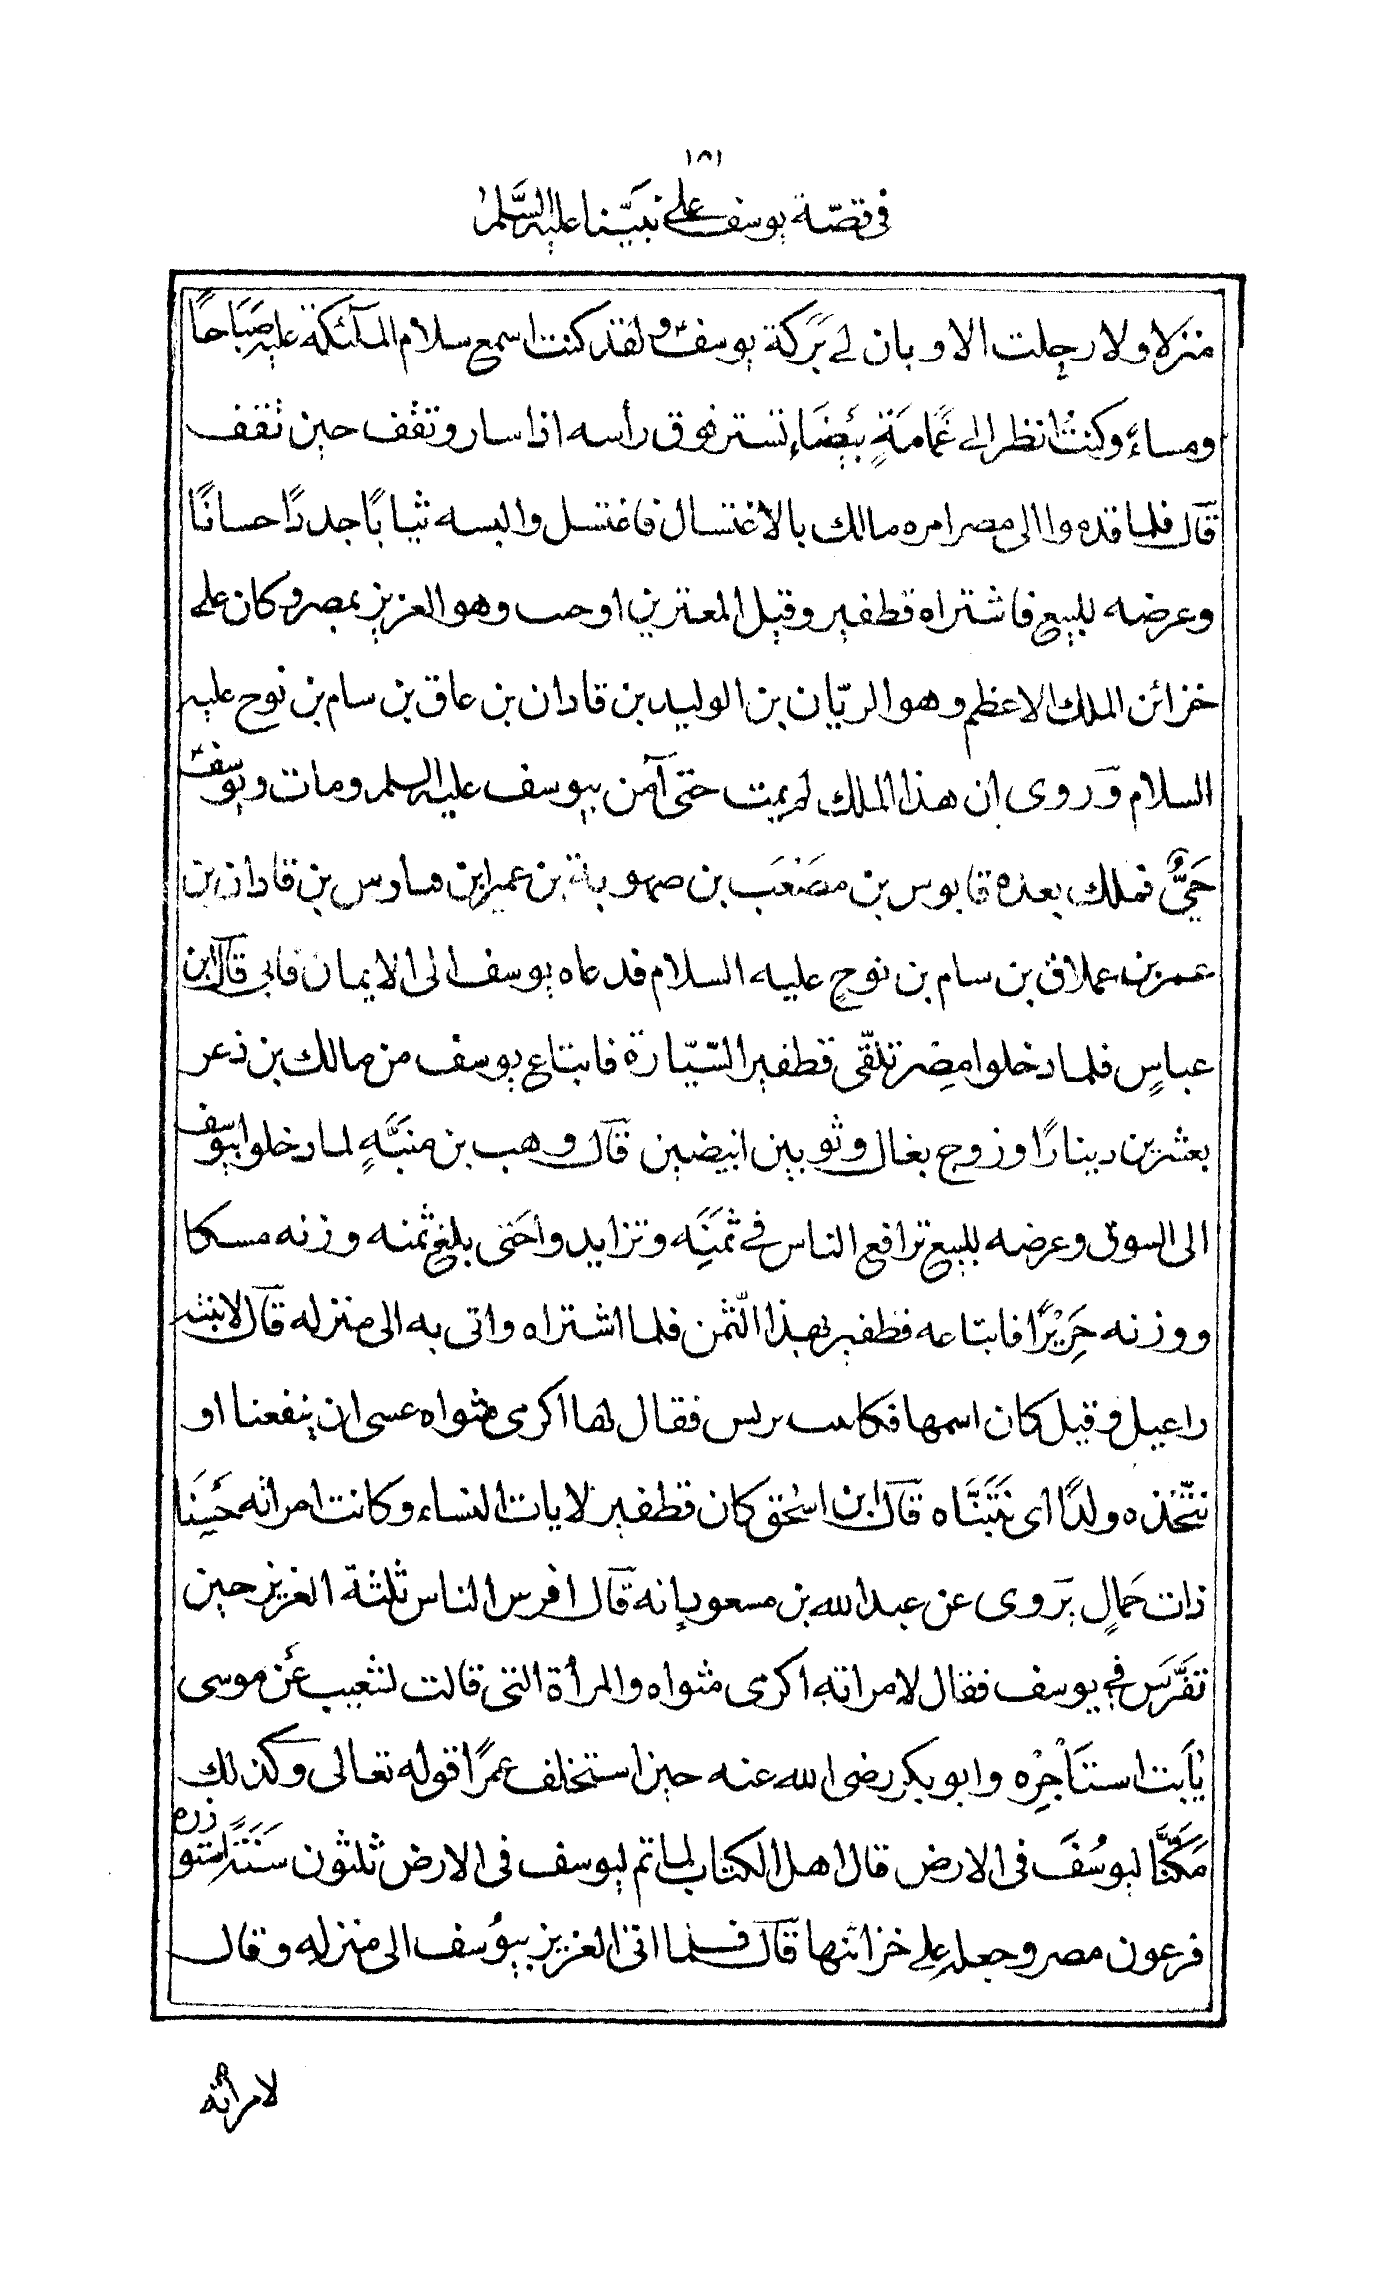 ١٨١
فى قصّة يوسف على نبيّنا عليه السّلم
منزلا ولا رحلت الا وبان لى بَركة يوسف ولقد كنت اسمع سلام الملٓئكة عليه صَبَاحًا
ومساءً وكنتُ انظر الى غَمامَةٍ بيَضَاءِ تستر فوق رأسه اذا سار وتقف حين تقف
قال فلما قدموا الى مصر امره مالك بالاغتسال فاغتسل والبسه ثيابًا جددًا حسانًا
وعرضه للبيع فاشتراه قطفير وقيل وهو العزيز بمصر وكان على
خزائن الملك الاعظم وهو الريّان بن الوليد بن قادان بن عاق بن سام بن نوح عليه
السلام وَروى ان هذا الملك لم يمت حتى آمن بيوسف عليه السلم ومات ويوسف
حَىٌّ فملك بعده قابوس بن مصَعَب بن بن عمير ابن بن قادان بن
عمر بن عملاق بن سام بن نوحٍ عليه السلام فدعاه يوسف الى الايمان فابى قال ابن
عباسٍ فلما دخلوا مِصْر تلقّى قطفير السّيّارة فابتاع يوسف من مالك بن ذعر
بعشرين دينارًا وزوج بغال وثوبين ابيضين قال وهب بن منبَّهٍ لما دخلوا بيوسف
الى السوق وعرضه للبيع ترافع الناس فى ثمَنِه وتزايدوا حَتى بلغ ثمنه وزنه مسكا
ووزنه حَرِيْرًا فابتاعه قطفير بهذا الثّمن فلما اشتراه واتى به الى منزله قال لامرأته
راعيل وقيل كان اسمها فقال لها اكرمى مثواه عسى ان ينفعنا او
نتّخذه ولدًا اى نَتَبَنَّاه قال ابن اسحٰق كان قطفير لا يات النساء وكانت امراته حَسِنَا
ذات جَمالٍ يَروى عن عبد الله بن مسعود انه قال افرس الناس ثلثة العزيز حين
تفَرَّسَ فى يوسف فقال لامراته اكرمى مثواه والمرأة التى قالت لشعيب عَن موسى
يٰاَبت استَأجِرْه وابو بكر رضى الله عنه حين استخلف عمرًا قوله تعالى وكذلك
مَكَّنَّا ليوسُفَ فى الارض قال اهل الكتاب لما تم ليوسف فى الارض ثلثون سَنَةً استوزره
فرعون مصر وجعله على خزائنها قال فلما اتى العزيز بيوُسف الى منزله وقال
لامرأته